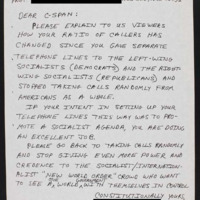 DEAR C-SPAN:
PLEASE EXPLAIN TO US VIEWERS
HOW YOUR RATIO OF CALLERS HAS
CHANGED SINCE YOU GAVE SEPARATE
TELEPHONE LINES TO THE LEFT-WING
SOCIALISTS (DEMOCRATS) AND THE RIGHT
WING SOCIALISTS (REPUBLICANS) AND
STOPPED TAKING CALLS RANDOMLY FROM
AMERICANS AS A WHOLE.
IF YOUR INTENT IN SETTING UP YOUR
TELEPHONE LINES THIS WAY WAS TO PRO-
MOTE A SOCIALIST AGENDA, YOU ARE DOING
AN EXCELLENT JOB.
PLEASE GO BACK TO TAKING CALLS RANDOMLY
AND STOP GIVING EVEN MORE POWER AND
CREDENCE TO THE SOCIALIST/INTERNATION-
ALIST "NEW WORLD ORDER" CROWD WHO WANT
TO SEE A WORLD WITH THEMSELVES IN CONTROL
CONSTITUTIONALLY YOURS,